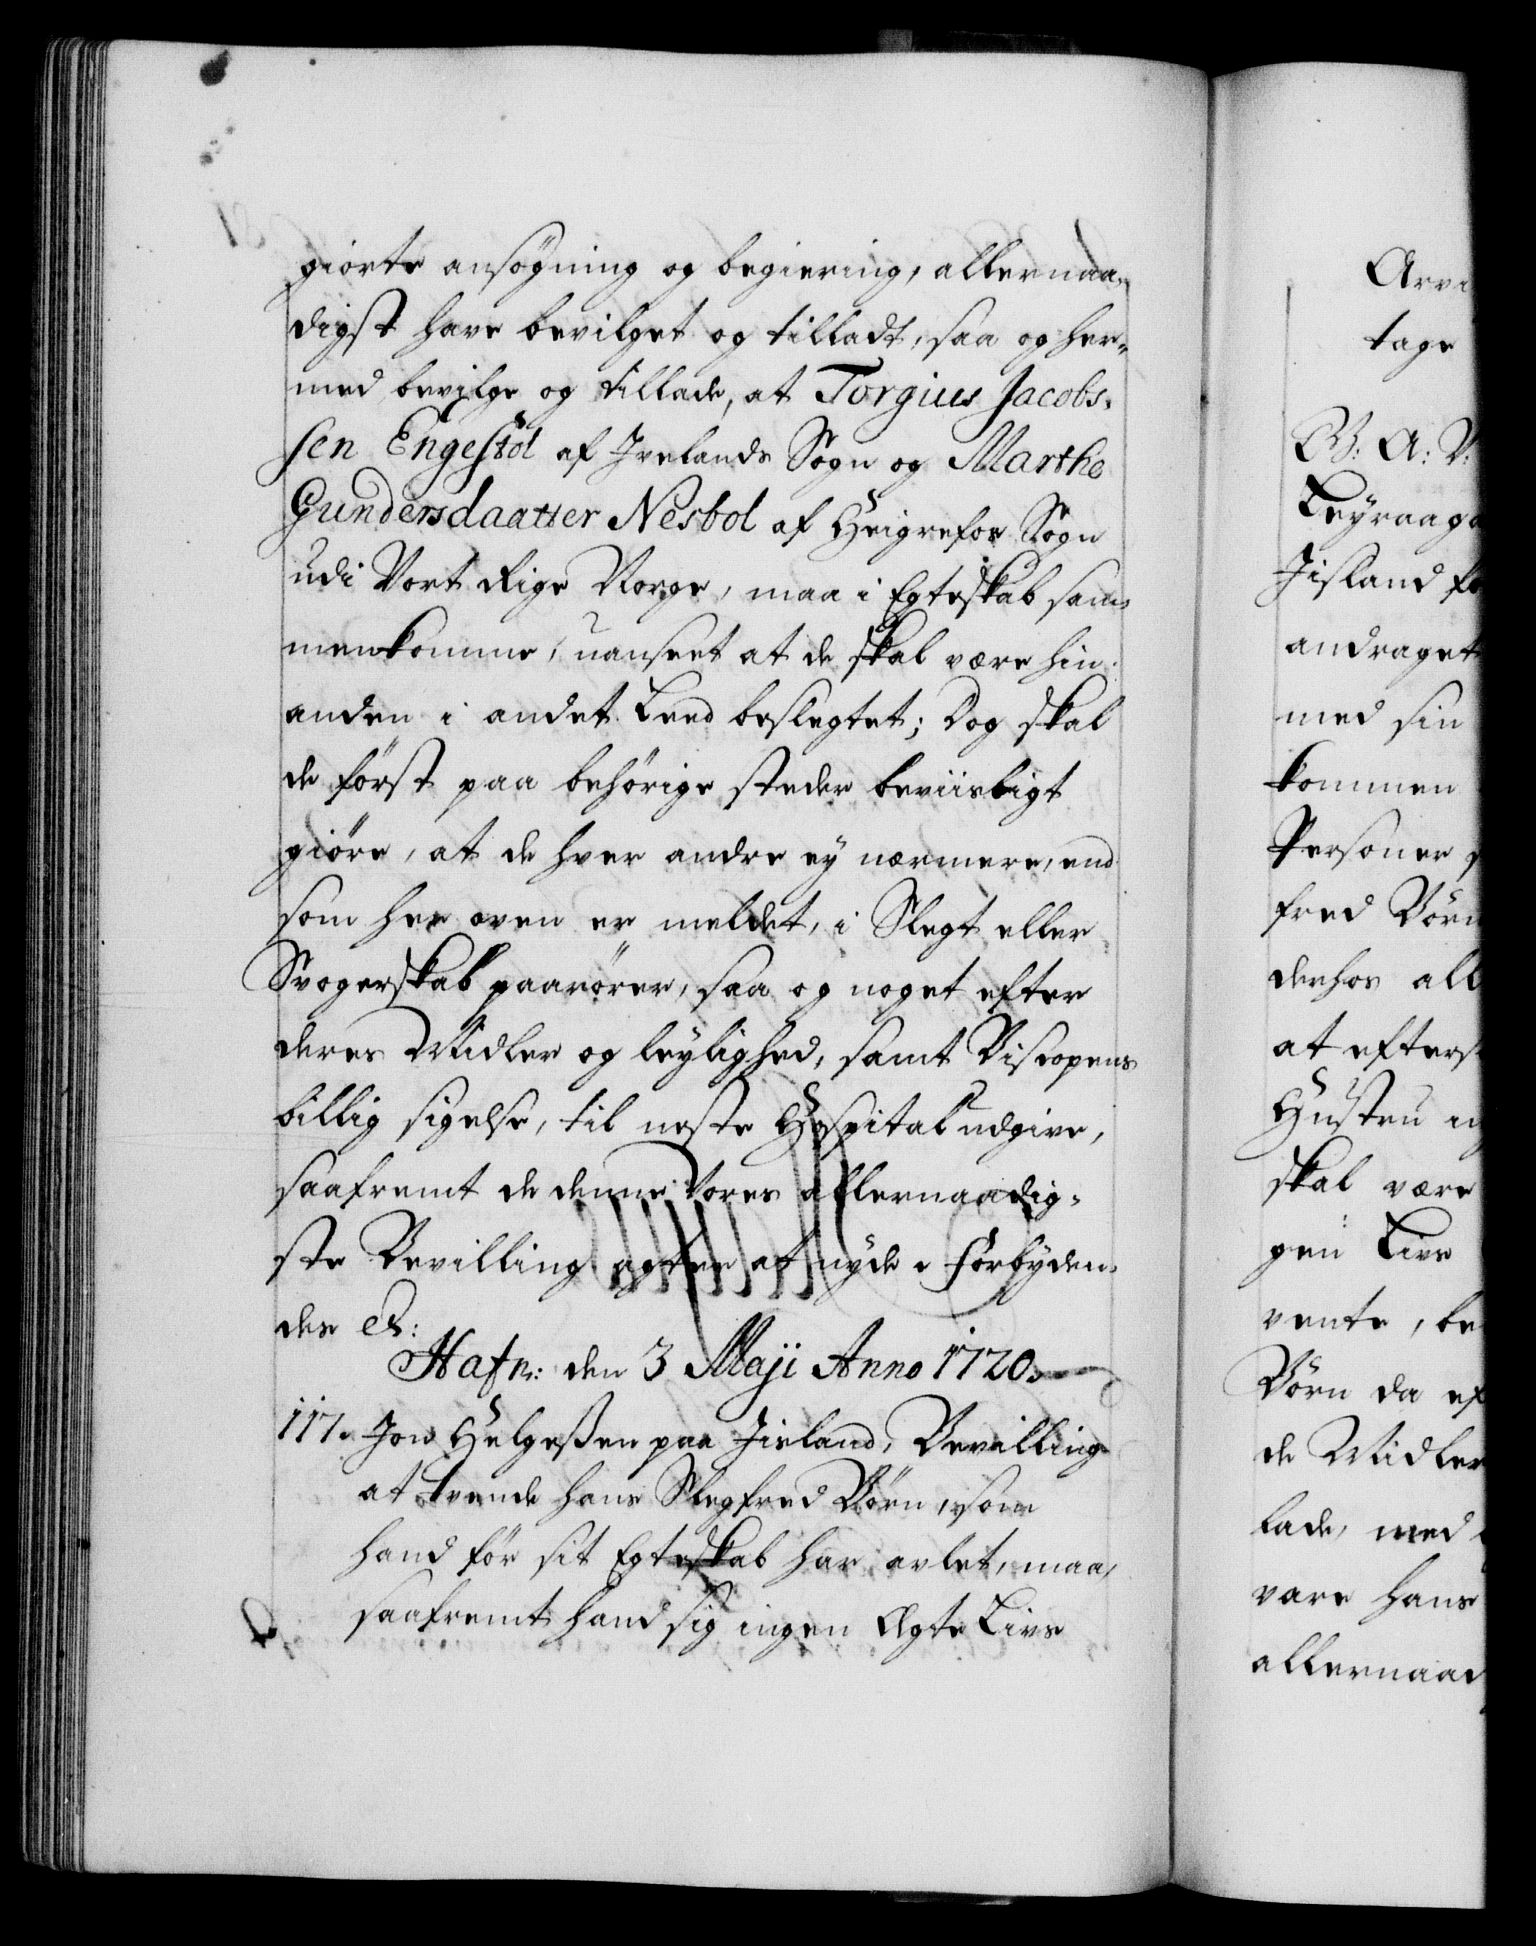 giorte ansøgning og begiering, allernaa-
digst have bevilget og tilladt, saa og her-
med bevilge og tillade, at Torgius Jacobs-
sen Engestöl af Ivelands Sogn og Marthe
Gundersdaatter Nesbol af Heigrefos Sogn
udi Vort Rige Norge, maa i Egteskab sam-
menkomme, uanseet at de skal være hin-
anden i andet Leed beslegtet; Dog skal
de først paa behörige steder beviisligt
giöre, at de hver andre ey nærmere, end
som her oven er meldet, i Slegt eller
Svogerskab paarörer, saa og noget efter
deres Midler og leylighed, samt Biscopens
billig sigelse, til neste Hospital udgive,
saafremt de denne Vores allernaadig-
ste Bevilling agter at nyde. Forbyden-
des &:
Hafn: den 3 Maji Anno 1720.
117. Jon Helgeßen paa Jisland, Bevilling
at tvende hans Slegfred Börn, som
hand för sit Egteskab har avlet, maa,
saafremt hand sig ingen Ægte Livs
Arvi
tage
G: A: V:
Leyraaga
Jisland
andraget
med sin
kommen
Personer
fred Börn
derhos all
at efters
Hustru
skal være
gen Livs
vente, be
Börn da ef
de Midler
lade, med
vare hans
allernaad